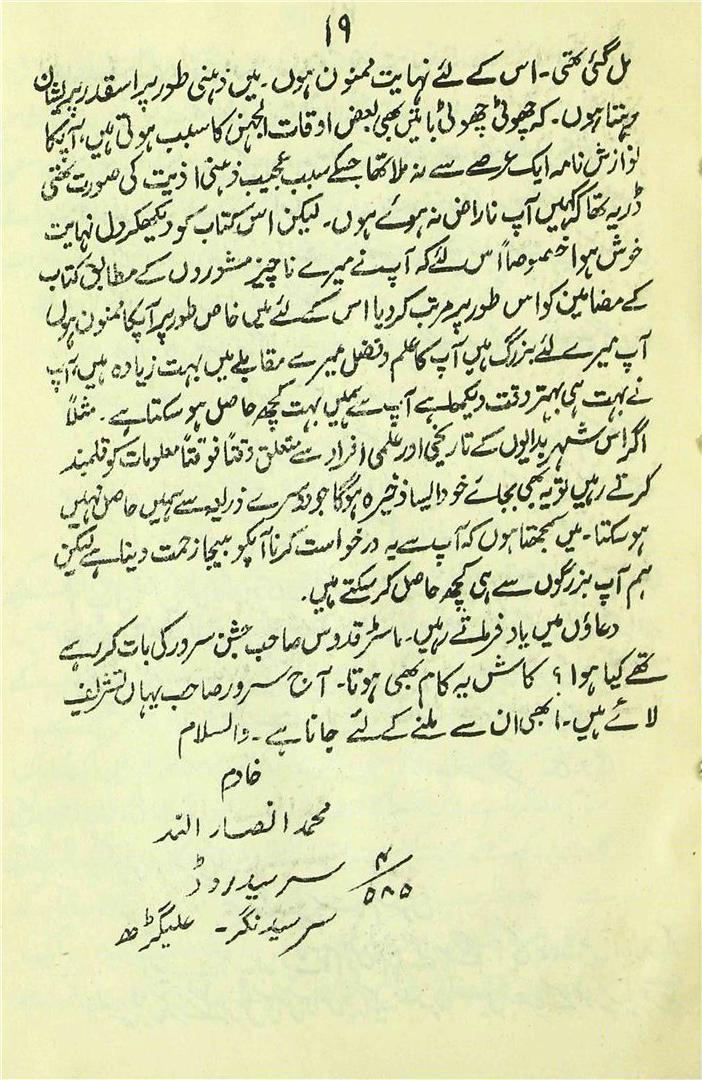 ۱۹
مل گئی تھی۔ اس کے لئے نہایت ممنون ہوں۔ میں ذہنی طور پر اسقدر پریشان
رہتا ہوں۔ کہ چھوٹی چھوٹی باتیں بھی بعض اوقات الجھن کا سبب ہوتی ہیں، آپ کا
نوازش نامہ ایک عرصے سے نہ ملا تھا جسکے سبب عجیب ذہنی اذیت کی صورت تھی
ڈر یہ تھا کہ کہیں آپ ناراض نہ ہوئے ہوں۔ لیکن اس کتاب کو دیکھکر دل نہایت
خوش ہوا خصوصاً اس لئے کہ آپ نے میرے ناچیز مشوروں کے مطابق کتاب
کے مضامین کو اس طور پر مرتب کر دیا اس کے لئے میں خاص طور پر آپکا ممنون ہوں
آپ میرے لئے بزرگ ہیں آپ کا علم و فضل میرے مقابلے میں بہت زیادہ ہیں، آپ
نے بہت ہی بہتر وقت دیکھا ہے آپ سے ہمیں بہت کچھ حاصل ہو سکتا ہے۔ مثلاً
اگر اس شہر بدایوں کے تاریخی اور علمی افراد سے متعلق وقتاً فوقتاً معلومات کو قلمبند
کرتے رہیں تو یہ بھی بجائے خود ایسا ذخیرہ ہوگا جو دوسرے ذریعہ سے ہمیں حاصل نہیں
ہو سکتا۔ میں سمجھتا ہوں کہ آپ سے یہ درخواست کرنا آپکو بیجا زحمت دینا ہے لیکن
ہم آپ بزرگوں سے ہی کچھ حاصل کر سکتے ہیں۔
دعاؤں میں یاد فرماتے رہیں۔ ماسٹر قدوس صاحب جشن سرور کی بات کر رہے
تھے کیا ہوا؟ کاش یہ کام بھی ہوتا۔ آج سرور صاحب یہاں تشریف
لائے ہیں۔ ابھی ان سے ملنے کے لئے جانا ہے۔ والسلام
خادم
محمد انصار اللہ
۴/۵۸۵ سرسید روڈ
سرسید نگر۔ علیگڑھ